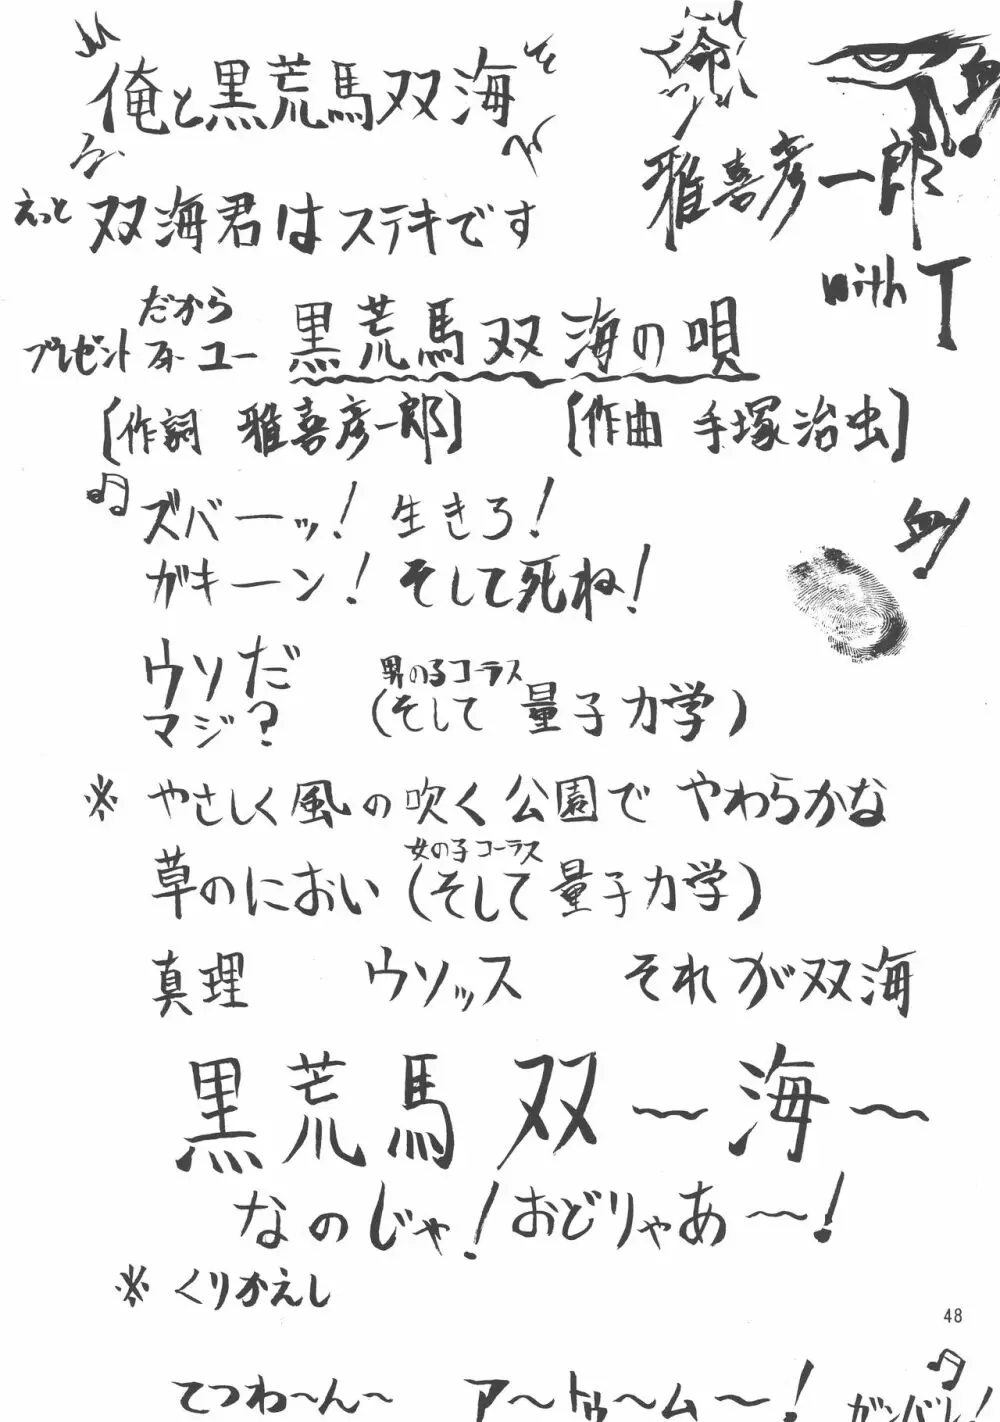 俺と黒荒馬双海
命
血!
雅喜彦一郎
with T
えっと 双海君はステキです
だから
プレゼント フォー ユー 黒荒馬双海の唄
[作詞 雅喜彦一郎] [作曲 手塚治虫]
♫ズバーッ! 生きろ!
ガキーン! そして死ね!
血!
ウソだ
マジ?
男の子コーラス
(そして 量子力学)
※ やさしく風の吹く公園で やわらかな
女の子コーラス
草のにおい (そして量子力学)
真理 ウソッス それが双海
黒荒馬双〜海〜
なのじゃ! おどりゃあ〜!
※ くりかえし
48
てつわ〜ん〜 ア〜トゥ〜ム〜! ♫
ガンバレ!